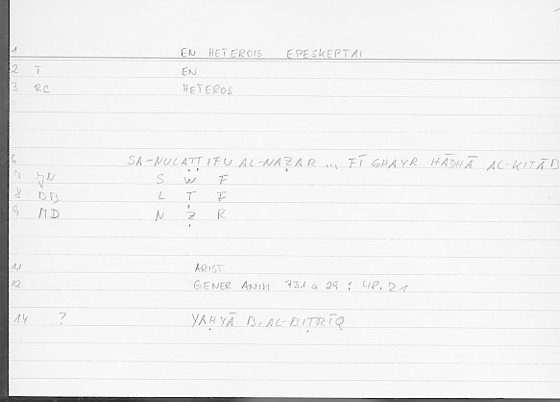 1 EN HETEROIS EPESKEPTAI
2 T EN
3 RC HETEROS
6 SA-NULAṬṬIFU AL-NAẒAR ... FĪ GHAYR HĀDHĀ AL-KITĀB
7 JN S W F
8 DD L Ṭ F
9 MD N Ẓ R
11 ARIST
12 GENER ANIM 731 a 29 : 48.21
14 ? YAḤYĀ B. AL-BIṬRĪQ